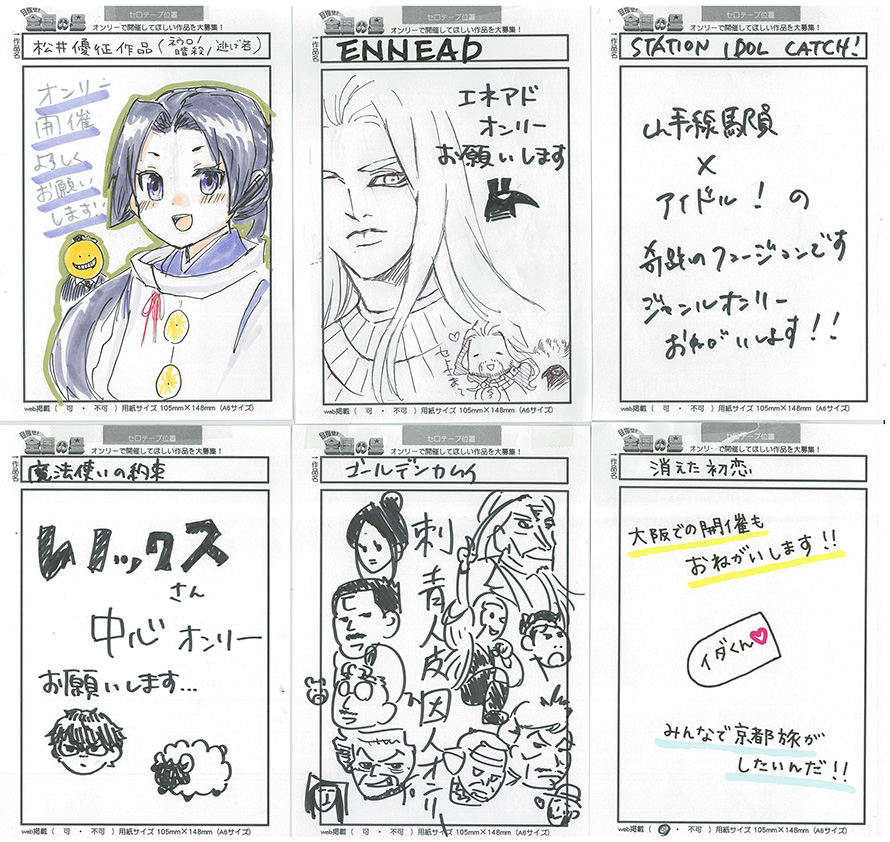 目指せ!
全国の星
セロテープ位置
オンリーで開催してほしい作品を大募集!
↑作品名
松井優征作品(ネウロ/暗殺/逃げ若)
オンリー
開催
よろしく
お願い
します!!
web掲載( 可 ・ 不可 )用紙サイズ 105mm×148mm(A6サイズ)
目指せ!
全国の星
セロテープ位置
オンリーで開催してほしい作品を大募集!
↑作品名
ENNEAD
エネアド
オンリー
お願いします
web掲載( 可 ・ 不可 )用紙サイズ 105mm×148mm(A6サイズ)
目指せ!
全国の星
セロテープ位置
オンリーで開催してほしい作品を大募集!
↑作品名
STATION IDOL CATCH!
山手線駅員
×
アイドル!の
奇跡のフュージョンです
ジャンルオンリー
おねがいします!!
web掲載( 可 ・ 不可 )用紙サイズ 105mm×148mm(A6サイズ)
目指せ!
全国の星
セロテープ位置
オンリーで開催してほしい作品を大募集!
↑作品名
魔法使いの約束
レノックス
さん
中心オンリー
お願いします…
web掲載( 可 ・ 不可 )用紙サイズ 105mm×148mm(A6サイズ)
目指せ!
全国の星
セロテープ位置
オンリーで開催してほしい作品を大募集!
↑作品名
ゴールデンカムイ
刺青人皮囚人オンリー
web掲載( 可 ・ 不可 )用紙サイズ 105mm×148mm(A6サイズ)
目指せ!
全国の星
セロテープ位置
オンリーで開催してほしい作品を大募集!
↑作品名
消えた初恋
大阪での開催も
おねがいします!!
イダくん♥
みんなで京都旅が
したいんだ!!
web掲載( 可 ・ 不可 )用紙サイズ 105mm×148mm(A6サイズ)